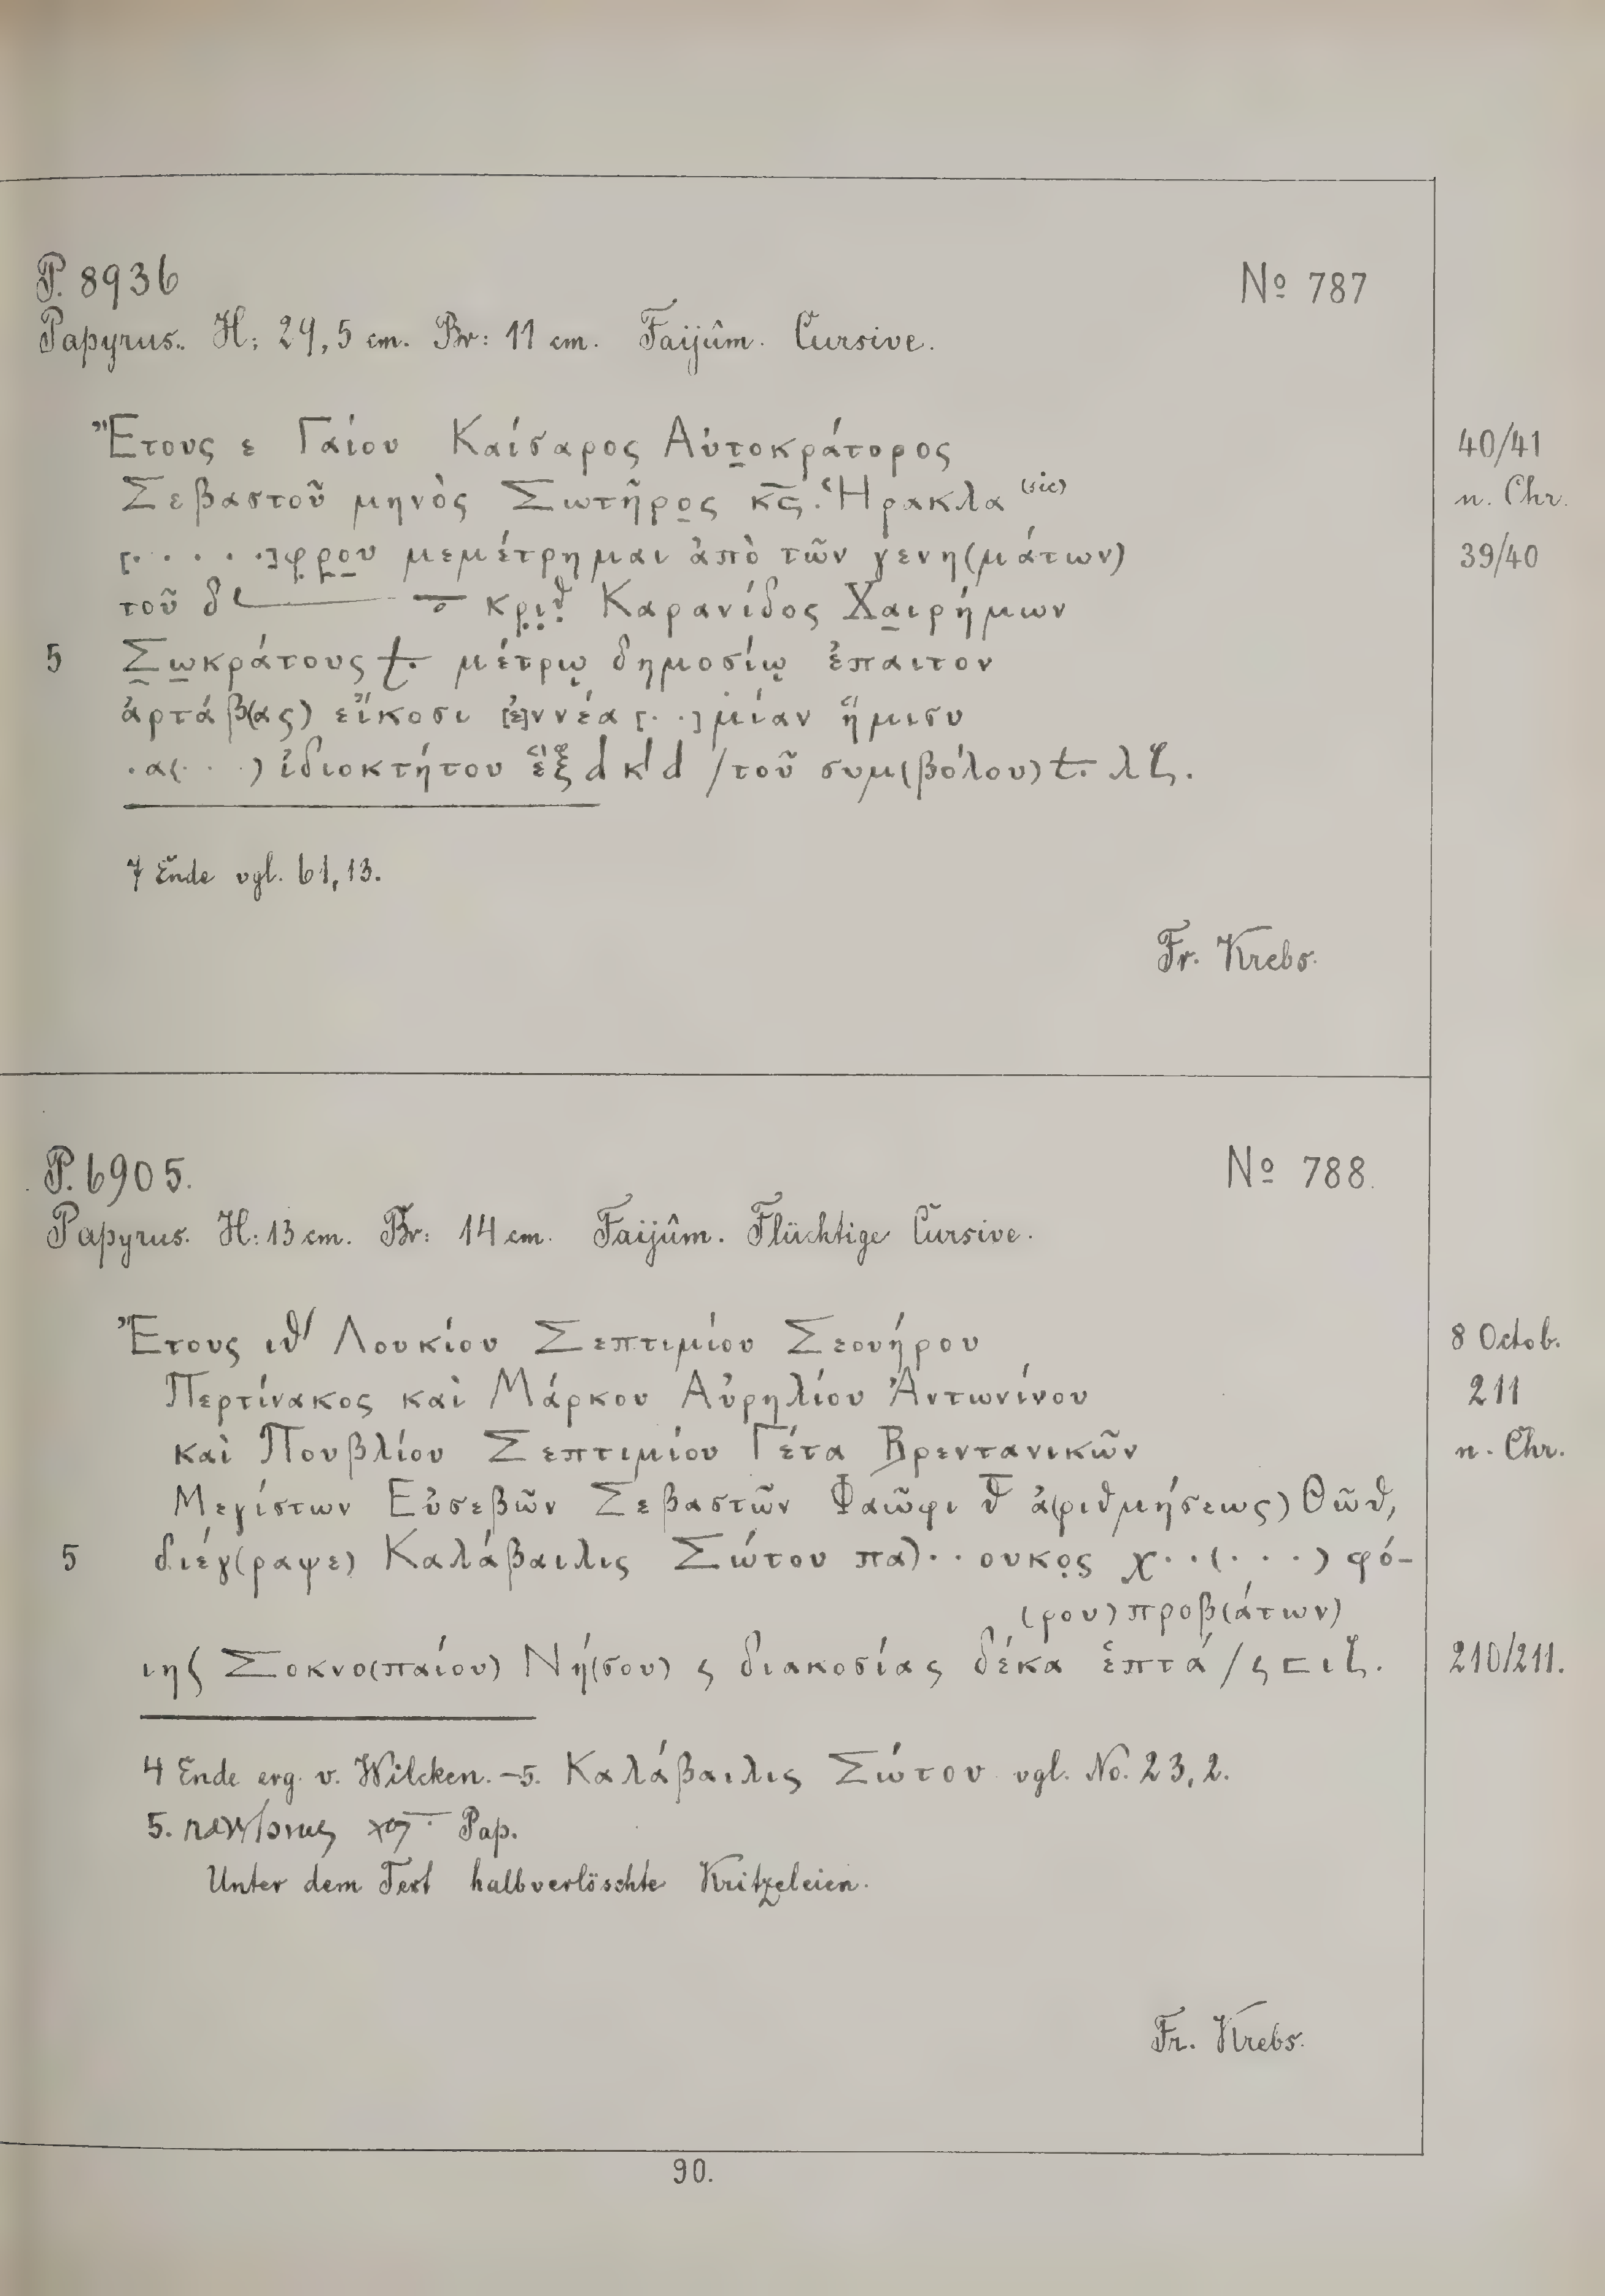 P. 8936
No 787
Papyrus. H: 29,5 cm. Br: 11 cm. Faijûm. Cursive.
Ἔτους ε Γαίου Καίσαρος Αὐτοκράτορος
40/41
Σεβαστοῦ μηνὸς Σωτῆρος κ̅ς̅. Ἡρακλα (sic)
n. Chr.
[· · · · ·]φρου μεμέτρημαι ἀπὸ τῶν γενη(μάτων)
39/40
τοῦ δ κριθ Καρανίδος Χαιρήμων
5 Σωκράτους μέτρῳ δημοσίῳ ἐπαιτον
ἀρτάβ(ας) εἴκοσι [ἐ]ννέα [· ·] μίαν ἥμισυ
·α(· · ·) ἰδιοκτήτου ἓξ d κ′d /τοῦ συμ(βόλου) λζ.
7 Ende vgl. 61,13.
Fr. Krebs.
P. 6905.
No 788.
Papyrus. H: 13 cm. Br: 14 cm. Faijûm. Flüchtige Cursive.
Ἔτους ιθ′ Λουκίου Σεπτιμίου Σεουήρου
8 Octob.
Περτίνακος καὶ Μάρκου Αὐρηλίου Ἀντωνίνου
211
καὶ Πουβλίου Σεπτιμίου Γέτα Βρεντανικῶν
n. Chr.
Μεγίστων Εὐσεβῶν Σεβαστῶν Φαῶφι θ̅ ἀ(ριθμήσεως) Θῶθ,
5 διέγ(ραψε) Καλάβαιλις Σώτου πα)· ·ουκος χ· ·(· · ·) φό-
(ρου) προβ(άτων)
ιηϛ Σοκνο(παίου) Νή(σου) ϛ διακοσίας δέκα ἑπτά /ϛ ⊏ιζ.
210/211.
4 Ende erg. v. Wilcken. – 5. Καλάβαιλις Σώτου vgl. No. 23,2.
5. Pap.
Unter dem Text halbverlöschte Kritzeleien.
Fr. Krebs.
90.